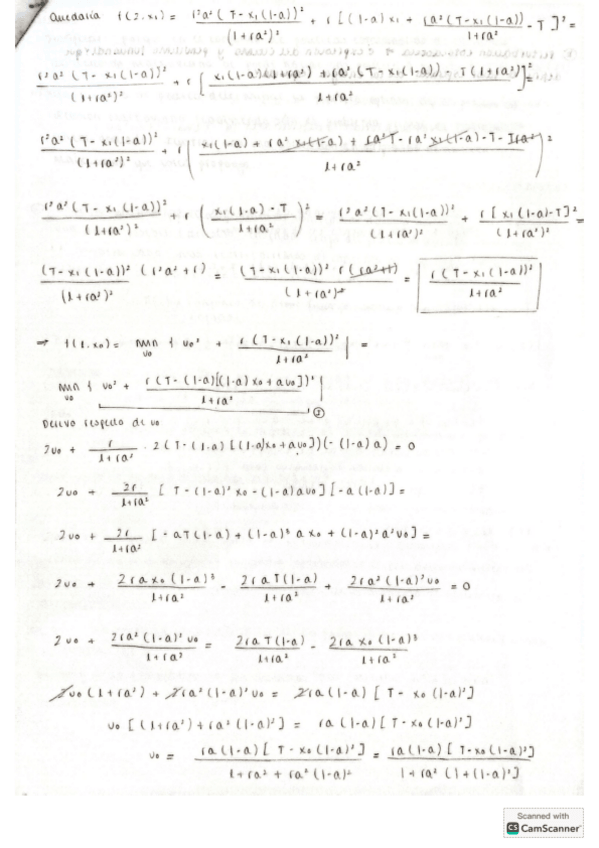 Quedaría f(2,x₁) = r²a²(T - x₁(1-a))² / (1+ra²)² + r[(1-a)x₁ + ra²(T-x₁(1-a)) / 1+ra² - T]² =
r²a²(T-x₁(1-a))² / (1+ra²)² + r[x₁(1-a)(1+ra²) + ra²(T-x₁(1-a)) - T(1+ra²) / 1+ra²]² =
r²a²(T-x₁(1-a))² / (1+ra²)² + r(x₁(1-a) + ra²x₁(1-a) + ra²T - ra²x₁(1-a) - T - Tra² / 1+ra²)²
r²a²(T-x₁(1-a))² / (1+ra²)² + r(x₁(1-a) - T / 1+ra²)² = r²a²(T-x₁(1-a))² / (1+ra²)² + r[x₁(1-a)-T]² / (1+ra²)² =
(T-x₁(1-a))² (r²a²+r) / (1+ra²)² = (T-x₁(1-a))² r(ra²+1) / (1+ra²)² = r(T-x₁(1-a))² / 1+ra²
⇒ f(1,x₀) = min u₀ { u₀² + r(T-x₁(1-a))² / 1+ra² } =
min u₀ { u₀² + r(T-(1-a)[(1-a)x₀+au₀])² / 1+ra² }
Derivo respecto de u₀
2u₀ + r / 1+ra² · 2(T-(1-a)[(1-a)x₀+au₀])(-(1-a)a) = 0
2u₀ + 2r / 1+ra² [T-(1-a)²x₀-(1-a)au₀][-a(1-a)] =
2u₀ + 2r / 1+ra² [-aT(1-a) + (1-a)³ax₀ + (1-a)²a²u₀] =
2u₀ + 2rax₀(1-a)³ / 1+ra² - 2raT(1-a) / 1+ra² + 2ra²(1-a)²u₀ / 1+ra² = 0
2u₀ + 2ra²(1-a)²u₀ / 1+ra² = 2raT(1-a) / 1+ra² - 2rax₀(1-a)³ / 1+ra²
2u₀(1+ra²) + 2ra²(1-a)²u₀ = 2ra(1-a)[T-x₀(1-a)²]
u₀[(1+ra²)+ra²(1-a)²] = ra(1-a)[T-x₀(1-a)²]
u₀ = ra(1-a)[T-x₀(1-a)²] / 1+ra²+ra²(1-a)² = ra(1-a)[T-x₀(1-a)²] / 1+ra²(1+(1-a)²]
Scanned with
CS CamScanner